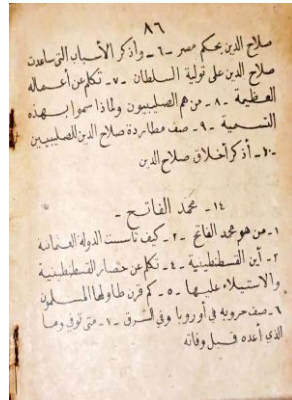 ٨٦
صلاح الدين بحكم مصر -٦- واذكر الأسباب التي ساعدت
صلاح الدين على تولية السلطان -٧- تكلم عن أعماله
العظيمة -٨- من هم الصليبيون ولماذا سموا بهذه
التسمية -٩- صف مطاردة صلاح الدين الصليبيين
-١٠- أذكر أخلاق صلاح الدين
١٤- محمد الفاتح -
١- من هو محمد الفاتح -٢- كيف تأسست الدولة العثمانية
٣- أين القسطنطينية -٤- تكلم عن حصار القسطنطينية
والاستيلاء عليها -٥- كم قرن طاولها المسلمون
٦- صف حروبه في أوروبا وفي الشرق -٧- متى توفي وما
الذي أعده قبل وفاته